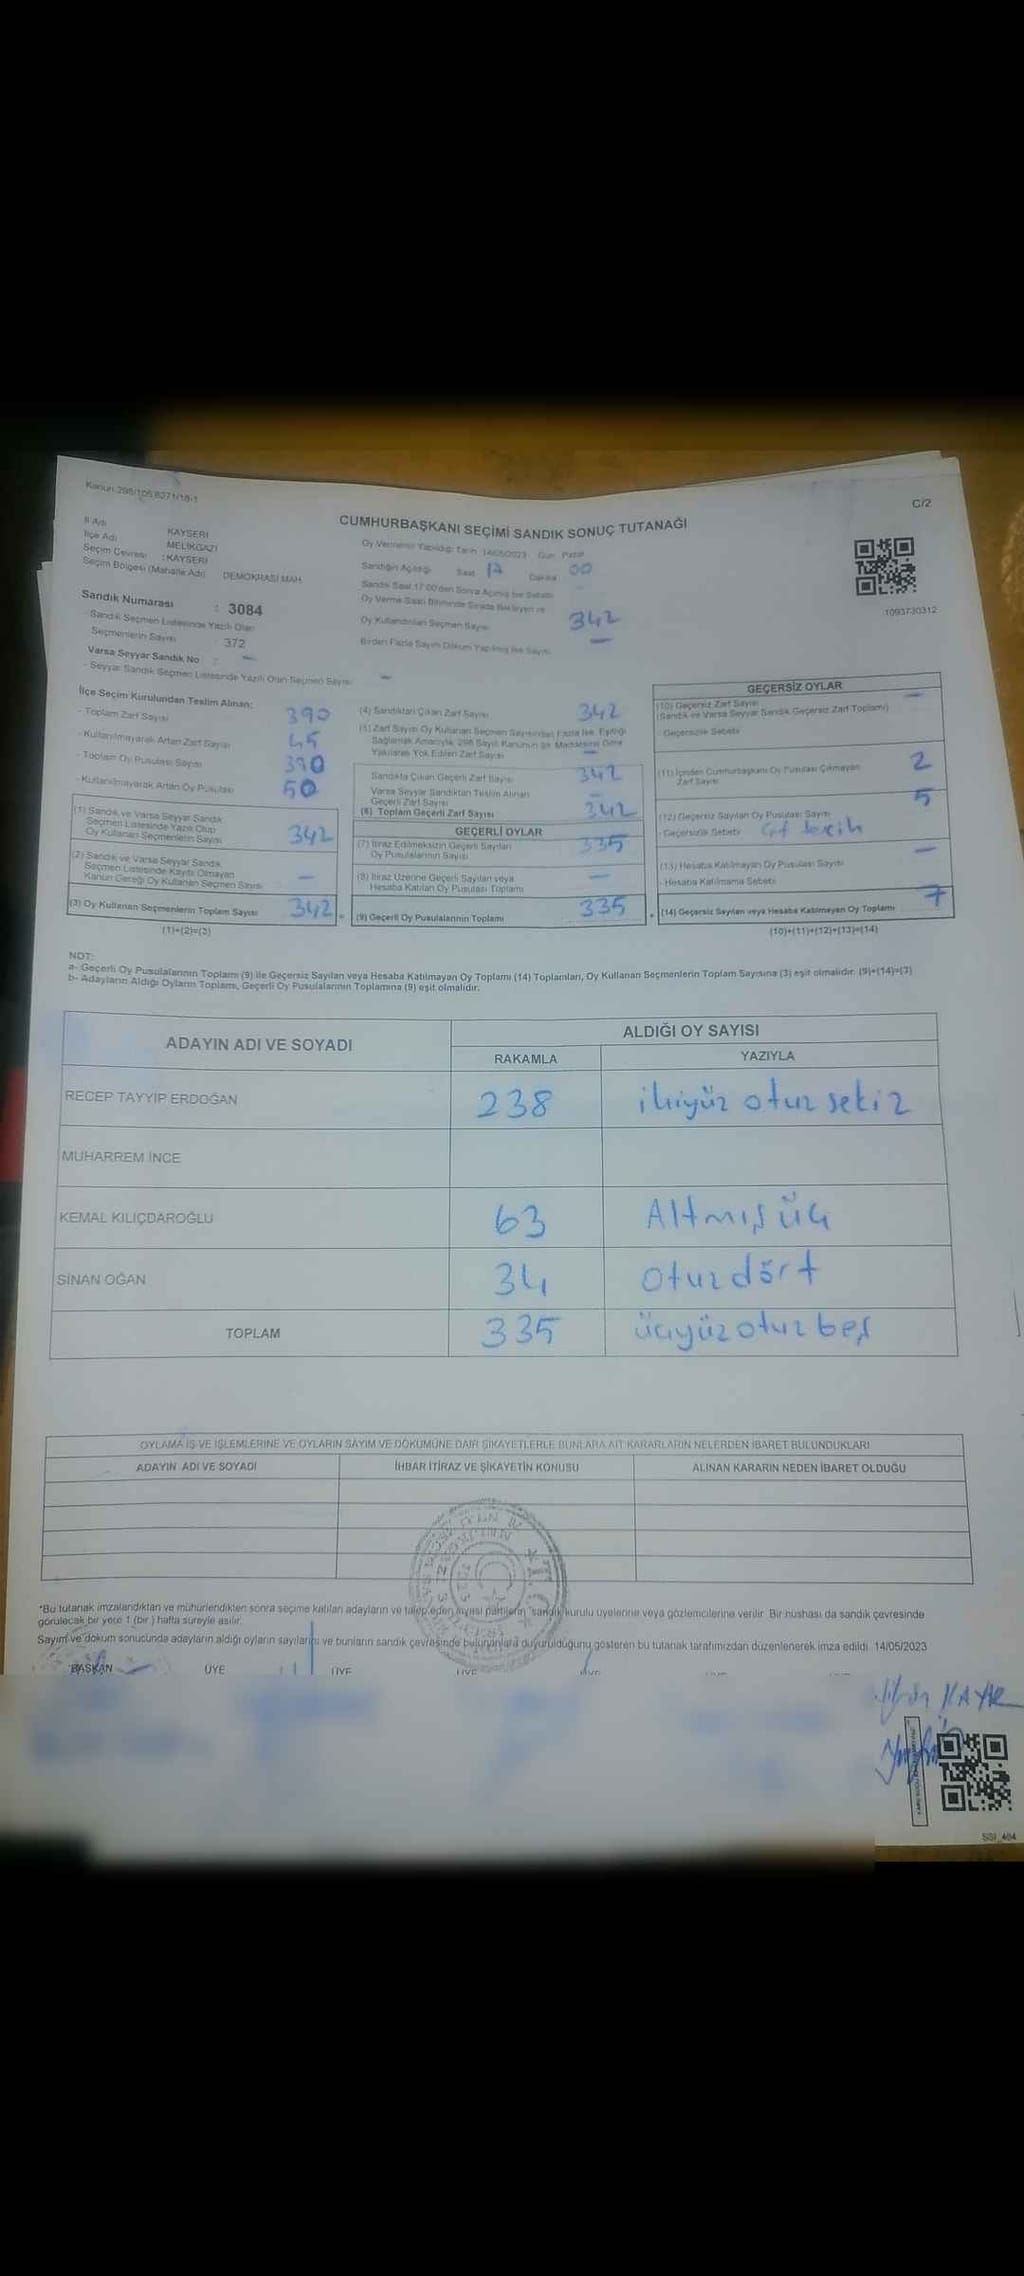 Kanun 298/105,6271/18-1
C/2
CUMHURBAŞKANI SEÇİMİ SANDIK SONUÇ TUTANAĞI
İl Adı KAYSERİ
İlçe Adı MELİKGAZİ
Seçim Çevresi : KAYSERİ
Seçim Bölgesi (Mahalle Adı) DEMOKRASİ MAH.
Sandık Numarası : 3084
- Sandık Seçmen Listesinde Yazılı Olan
Seçmenlerin Sayısı 372
Varsa Seyyar Sandık No : -
- Seyyar Sandık Seçmen Listesinde Yazılı Olan Seçmen Sayısı -
Oy Vermenin Yapıldığı Tarih 14/05/2023 Gün Pazar
Sandığın Açıldığı Saat 17 Dakika 00
Sandık Saat 17:00'den Sonra Açılmış İse Sebebi -
Oy Verme Saati Bitiminde Sırada Bekleyen ve
Oy Kullandırılan Seçmen Sayısı 342
Birden Fazla Sayım Döküm Yapılmış İse Sayısı -
1093730312
İlçe Seçim Kurulundan Teslim Alınan;
- Toplam Zarf Sayısı 390
- Kullanılmayarak Artan Zarf Sayısı 45
- Toplam Oy Pusulası Sayısı 390
- Kullanılmayarak Artan Oy Pusulası 50
(1) Sandık ve Varsa Seyyar Sandık
Seçmen Listesinde Yazılı Olup
Oy Kullanan Seçmenlerin Sayısı 342
(2) Sandık ve Varsa Seyyar Sandık
Seçmen Listesinde Kayıtlı Olmayan
Kanun Gereği Oy Kullanan Seçmen Sayısı -
(3) Oy Kullanan Seçmenlerin Toplam Sayısı 342 =
(1)+(2)=(3)
(4) Sandıktan Çıkan Zarf Sayısı 342
(5) Zarf Sayısı Oy Kullanan Seçmen Sayısından Fazla İse, Eşitliği
Sağlamak Amacıyla 298 Sayılı Kanunun 98. Maddesine Göre
Yakılarak Yok Edilen Zarf Sayısı -
Sandıkta Çıkan Geçerli Zarf Sayısı 342
Varsa Seyyar Sandıktan Teslim Alınan
Geçerli Zarf Sayısı -
(6) Toplam Geçerli Zarf Sayısı 342
GEÇERLİ OYLAR
(7) İtiraz Edilmeksizin Geçerli Sayılan
Oy Pusulalarının Sayısı 335
(8) İtiraz Üzerine Geçerli Sayılan veya
Hesaba Katılan Oy Pusulası Toplamı -
(9) Geçerli Oy Pusulalarının Toplamı 335 +
GEÇERSİZ OYLAR
(10) Geçersiz Zarf Sayısı -
(Sandık ve Varsa Seyyar Sandık Geçersiz Zarf Toplamı)
- Geçersizlik Sebebi
(11) İçinden Cumhurbaşkanı Oy Pusulası Çıkmayan
Zarf Sayısı 2
(12) Geçersiz Sayılan Oy Pusulası Sayısı 5
- Geçersizlik Sebebi
(13) Hesaba Katılmayan Oy Pusulası Sayısı -
- Hesaba Katılmama Sebebi
(14) Geçersiz Sayılan veya Hesaba Katılmayan Oy Toplamı 7
(10)+(11)+(12)+(13)=(14)
NOT:
a- Geçerli Oy Pusulalarının Toplamı (9) ile Geçersiz Sayılan veya Hesaba Katılmayan Oy Toplamı (14) Toplamları, Oy Kullanan Seçmenlerin Toplam Sayısına (3) eşit olmalıdır. (9)+(14)=(3)
b- Adayların Aldığı Oyların Toplamı, Geçerli Oy Pusulalarının Toplamına (9) eşit olmalıdır.
ADAYIN ADI VE SOYADI
ALDIĞI OY SAYISI
RAKAMLA YAZIYLA
RECEP TAYYİP ERDOĞAN 238 ikiyüz otuz sekiz
MUHARREM İNCE
KEMAL KILIÇDAROĞLU 63 Altmış üç
SİNAN OĞAN 34 otuz dört
TOPLAM 335 üçyüz otuz beş
OYLAMA İŞ VE İŞLEMLERİNE VE OYLARIN SAYIM VE DÖKÜMÜNE DAİR ŞİKAYETLERLE BUNLARA AİT KARARLARIN NELERDEN İBARET BULUNDUKLARI
ADAYIN ADI VE SOYADI İHBAR İTİRAZ VE ŞİKAYETİN KONUSU ALINAN KARARIN NEDEN İBARET OLDUĞU
*Bu tutanak imzalandıktan ve mühürlendikten sonra seçime katılan adayların ve talep eden siyasi partilerin sandık kurulu üyelerine veya gözlemcilerine verilir. Bir nüshası da sandık çevresinde
görülecek bir yere 1 (bir) hafta süreyle asılır.
Sayım ve döküm sonucunda adayların aldığı oyların sayılarını ve bunların sandık çevresinde bulunanlara duyurulduğunu gösteren bu tutanak tarafımızdan düzenlenerek imza edildi. 14/05/2023
BAŞKAN ÜYE ÜYE ÜYE ÜYE
SSI_404